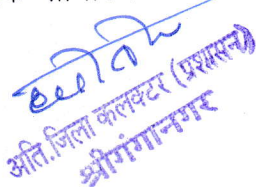 अति. जिला कलक्टर (प्रशासन)
श्रीगंगानगर